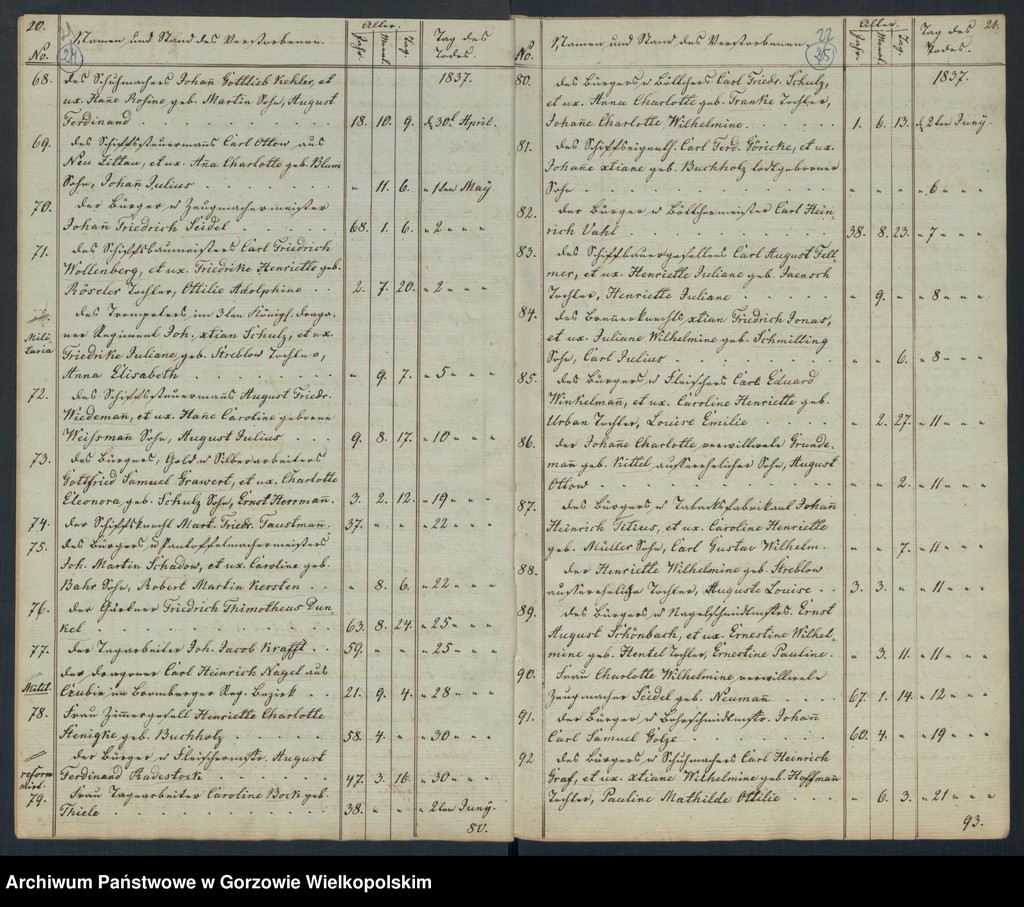 20.
24
No.
Namen und Stand des Verstorbenen.
Alter.
Jahr.
Monat.
Tag.
Tag des
Todes.
1837.
68. des Schuhmachers Johañ Gottlieb Kehler, et
ux. Hañe Rosine geb. Martin Sohn, August
Ferdinand . . . . 18. 10. 9. d. 30t April.
69. des Schiffssteuermañs Carl Ottow aus
Neu Littau, et ux. Aña Charlotte geb. Blum
Sohn, Johañ Julius . . . . " 11. 6. " 1ten May.
70. der Bürger u Zeugmachermeister
Johañ Friedrich Seidel . . . . 68. 1. 6. " 2 " " "
71. des Schiffsbaumeisters Carl Friedrich
Wollenberg, et ux. Friedrike Henriette geb.
Röseler Tochter, Ottilie Adolphine . . 2. 7. 20. " 2 " " "
des Trompeters im 3ten Königl. Drago-
Mili ner Regiment Joh. xtian Schulz, et ux.
taria Friedrike Juliane, geb. Streblow Tochter,
Anna Elisabeth . . . . " 9. 7. " 5 " " "
72. des Schiffssteuermañs August Friedr.
Wiedemañ, et ux. Hañe Caroline geborene
Weißmañ Sohn, August Julius . . . 9. 8. 17. " 10 " " "
73. des Bürgers, Gold u Silberarbeiters
Gottfried Samuel Grawert, et ux. Charlotte
Eleonora, geb. Schulz Sohn, Ernst Herrmañ. 3. 2. 12. " 19 " " "
74. der Schiffsknecht Mart. Friedr. Faustmañ. 37. " " " 22 " " "
75. des Bürgers u Pantoffelmachermeisters
Joh. Martin Schadow, et ux. Caroline geb.
Bahr Sohn, Robert Martin Kersten . . " 8. 6. " 22 " " "
76. der Gärtner Friedrich Thimotheus Dun-
kel . . . . 63. 8. 24. " 25 " " "
77. der Tagarbeiter Joh. Jacob Krafft . . 59. " " " 25 " " "
der Dragoner Carl Heinrich Nagel aus
Milit. Czubin im Bromberger Reg. Bezirk . . 21. 9. 4. " 28 " " "
78. Frau Zimmergesell Henriette Charlotte
Stenigke geb. Buchholz . . . . 58. 4. " " 30 " " "
der Bürger u Fleischermstr. August
reform Ferdinand Radestock . . . . 47. 3. 16. " 30 " " "
79. Frau Tagearbeiter Caroline Bock geb.
Thiele . . . . 38. " " " 2ten Juny.
80.
21.
25
No.
Namen und Stand des Verstorbenen.
Alter.
Jahr.
Monat.
Tag.
Tag des
Todes.
1837.
80. des Bürgers u Böttchers Carl Friedr. Schulz,
et ux. Anna Charlotte geb. Franke Tochter,
Johañe Charlotte Wilhelmine . . . . 1. 6. 13. d. 2ten Juny.
81. des Schiffseigenth. Carl Ferd. Göricke, et ux.
Johañe xtiane geb. Buchholz todtgeborener
Sohn . . . . " " " " 6 " " "
82. der Bürger u Böttchermeister Carl Hein
rich Vahl . . . . 38. 8. 23. " 7 " " "
83. des Schiffbauergesellens Carl August Fell-
mer, et ux. Henriette Juliane geb. Jaensch
Tochter, Henriette Juliane . . . . " 9. " " 8 " " "
84. des Brauerknechts xtian Friedrich Jonas,
et ux. Juliane Wilhelmine geb. Schmilling
Sohn, Carl Julius . . . . " 6. " 8 " " "
85. des Bürgers u Fleischers Carl Eduard
Winkelmañ, et ux. Caroline Henriette geb.
Urban Tochter, Louise Emilie . . . . " 2. 27. " 11 " " "
86. der Johañe Charlotte verwittwete Grunde-
mañ geb. Kittel ausserehelicher Sohn, August
Ottow . . . . " " 2. " 11 " " "
87. des Bürgers u Tabacksfabrikant Johañ
Heinrich Titius, et ux. Caroline Henriette
geb. Müller Sohn, Carl Gustav Wilhelm . " " 7. " 11 " " "
88. der Henriette Wilhelmine geb. Streblow
aussereheliche Tochter, Auguste Louise . . 3. 3. " " 11 " " "
89. des Bürgers u Nagelschmidtmstrs. Ernst
August Schönbach, et ux. Ernestine Wilhel-
mine geb. Hentel Tochter, Ernestine Pauline . " 3. 11. " 11 " " "
90. Frau Charlotte Wilhelmine, verwittwete
Zeugmacher Seidel geb. Neumañ . . 67. 1. 14. " 12 " " "
91. der Bürger u Bohrschmidtmstr. Johañ
Carl Samuel Götze . . . . 60. 4. " " 19 " " "
92 des Bürgers u Schuhmachers Carl Heinrich
Graf, et ux. xtiane Wilhelmine geb. Hoffman
Tochter, Pauline Mathilde Ottilie . . . " 6. 3. " 21 " " "
93.
Archiwum Państwowe w Gorzowie Wielkopolskim